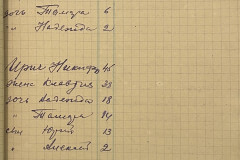 дочь Тамара 6
" Надежда 2
Юрий Никифор 45
жена Клавдия 33
дочь Надежда 18
" Тамара 14
сын Юрий 13
" Алексей 2